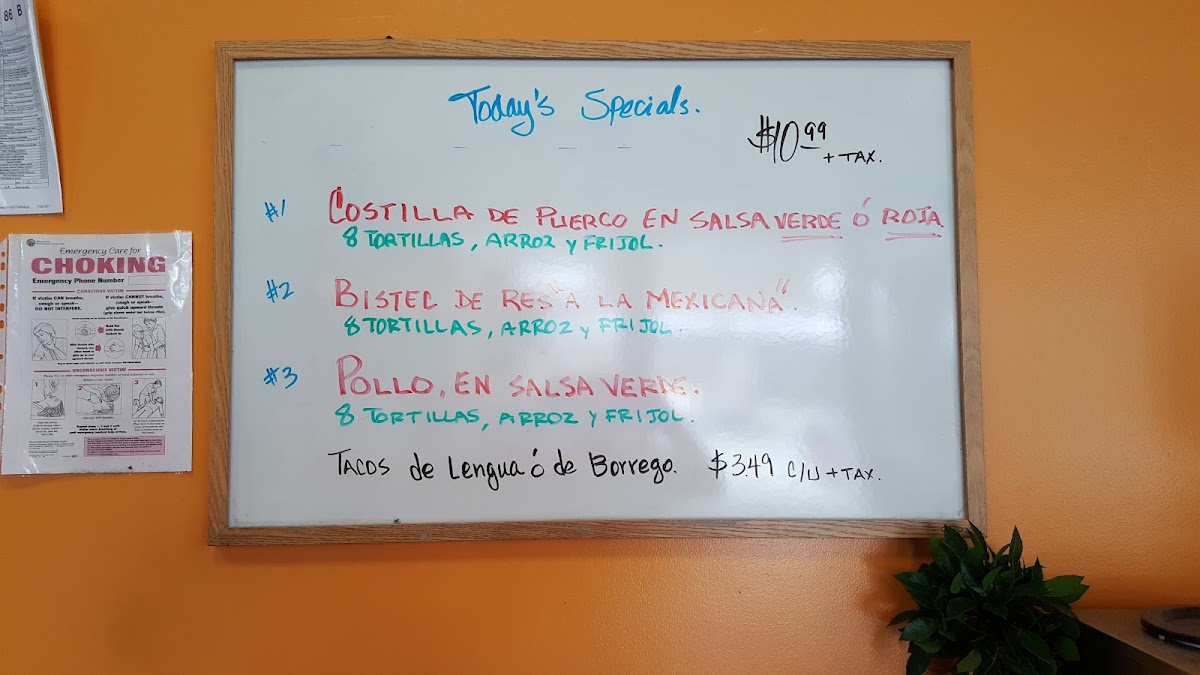 Today's Specials.
$10.99 + TAX.
#1 COSTILLA DE PUERCO EN SALSA VERDE Ó ROJA.
8 TORTILLAS, ARROZ Y FRIJOL.
#2 BISTEC DE RES "A LA MEXICANA".
8 TORTILLAS, ARROZ Y FRIJOL.
#3 POLLO, EN SALSA VERDE.
8 TORTILLAS, ARROZ Y FRIJOL.
TACOS de Lengua ó de Borrego. $3.49 C/U + TAX.
86 B
Emergency Care for
CHOKING
Emergency Phone Number
CONSCIOUS VICTIM
If victim CAN breathe,
cough or speak—
DO NOT INTERFERE.
If victim CANNOT breathe,
cough or speak—
give quick upward thrusts
UNCONSCIOUS VICTIM
1
2
3